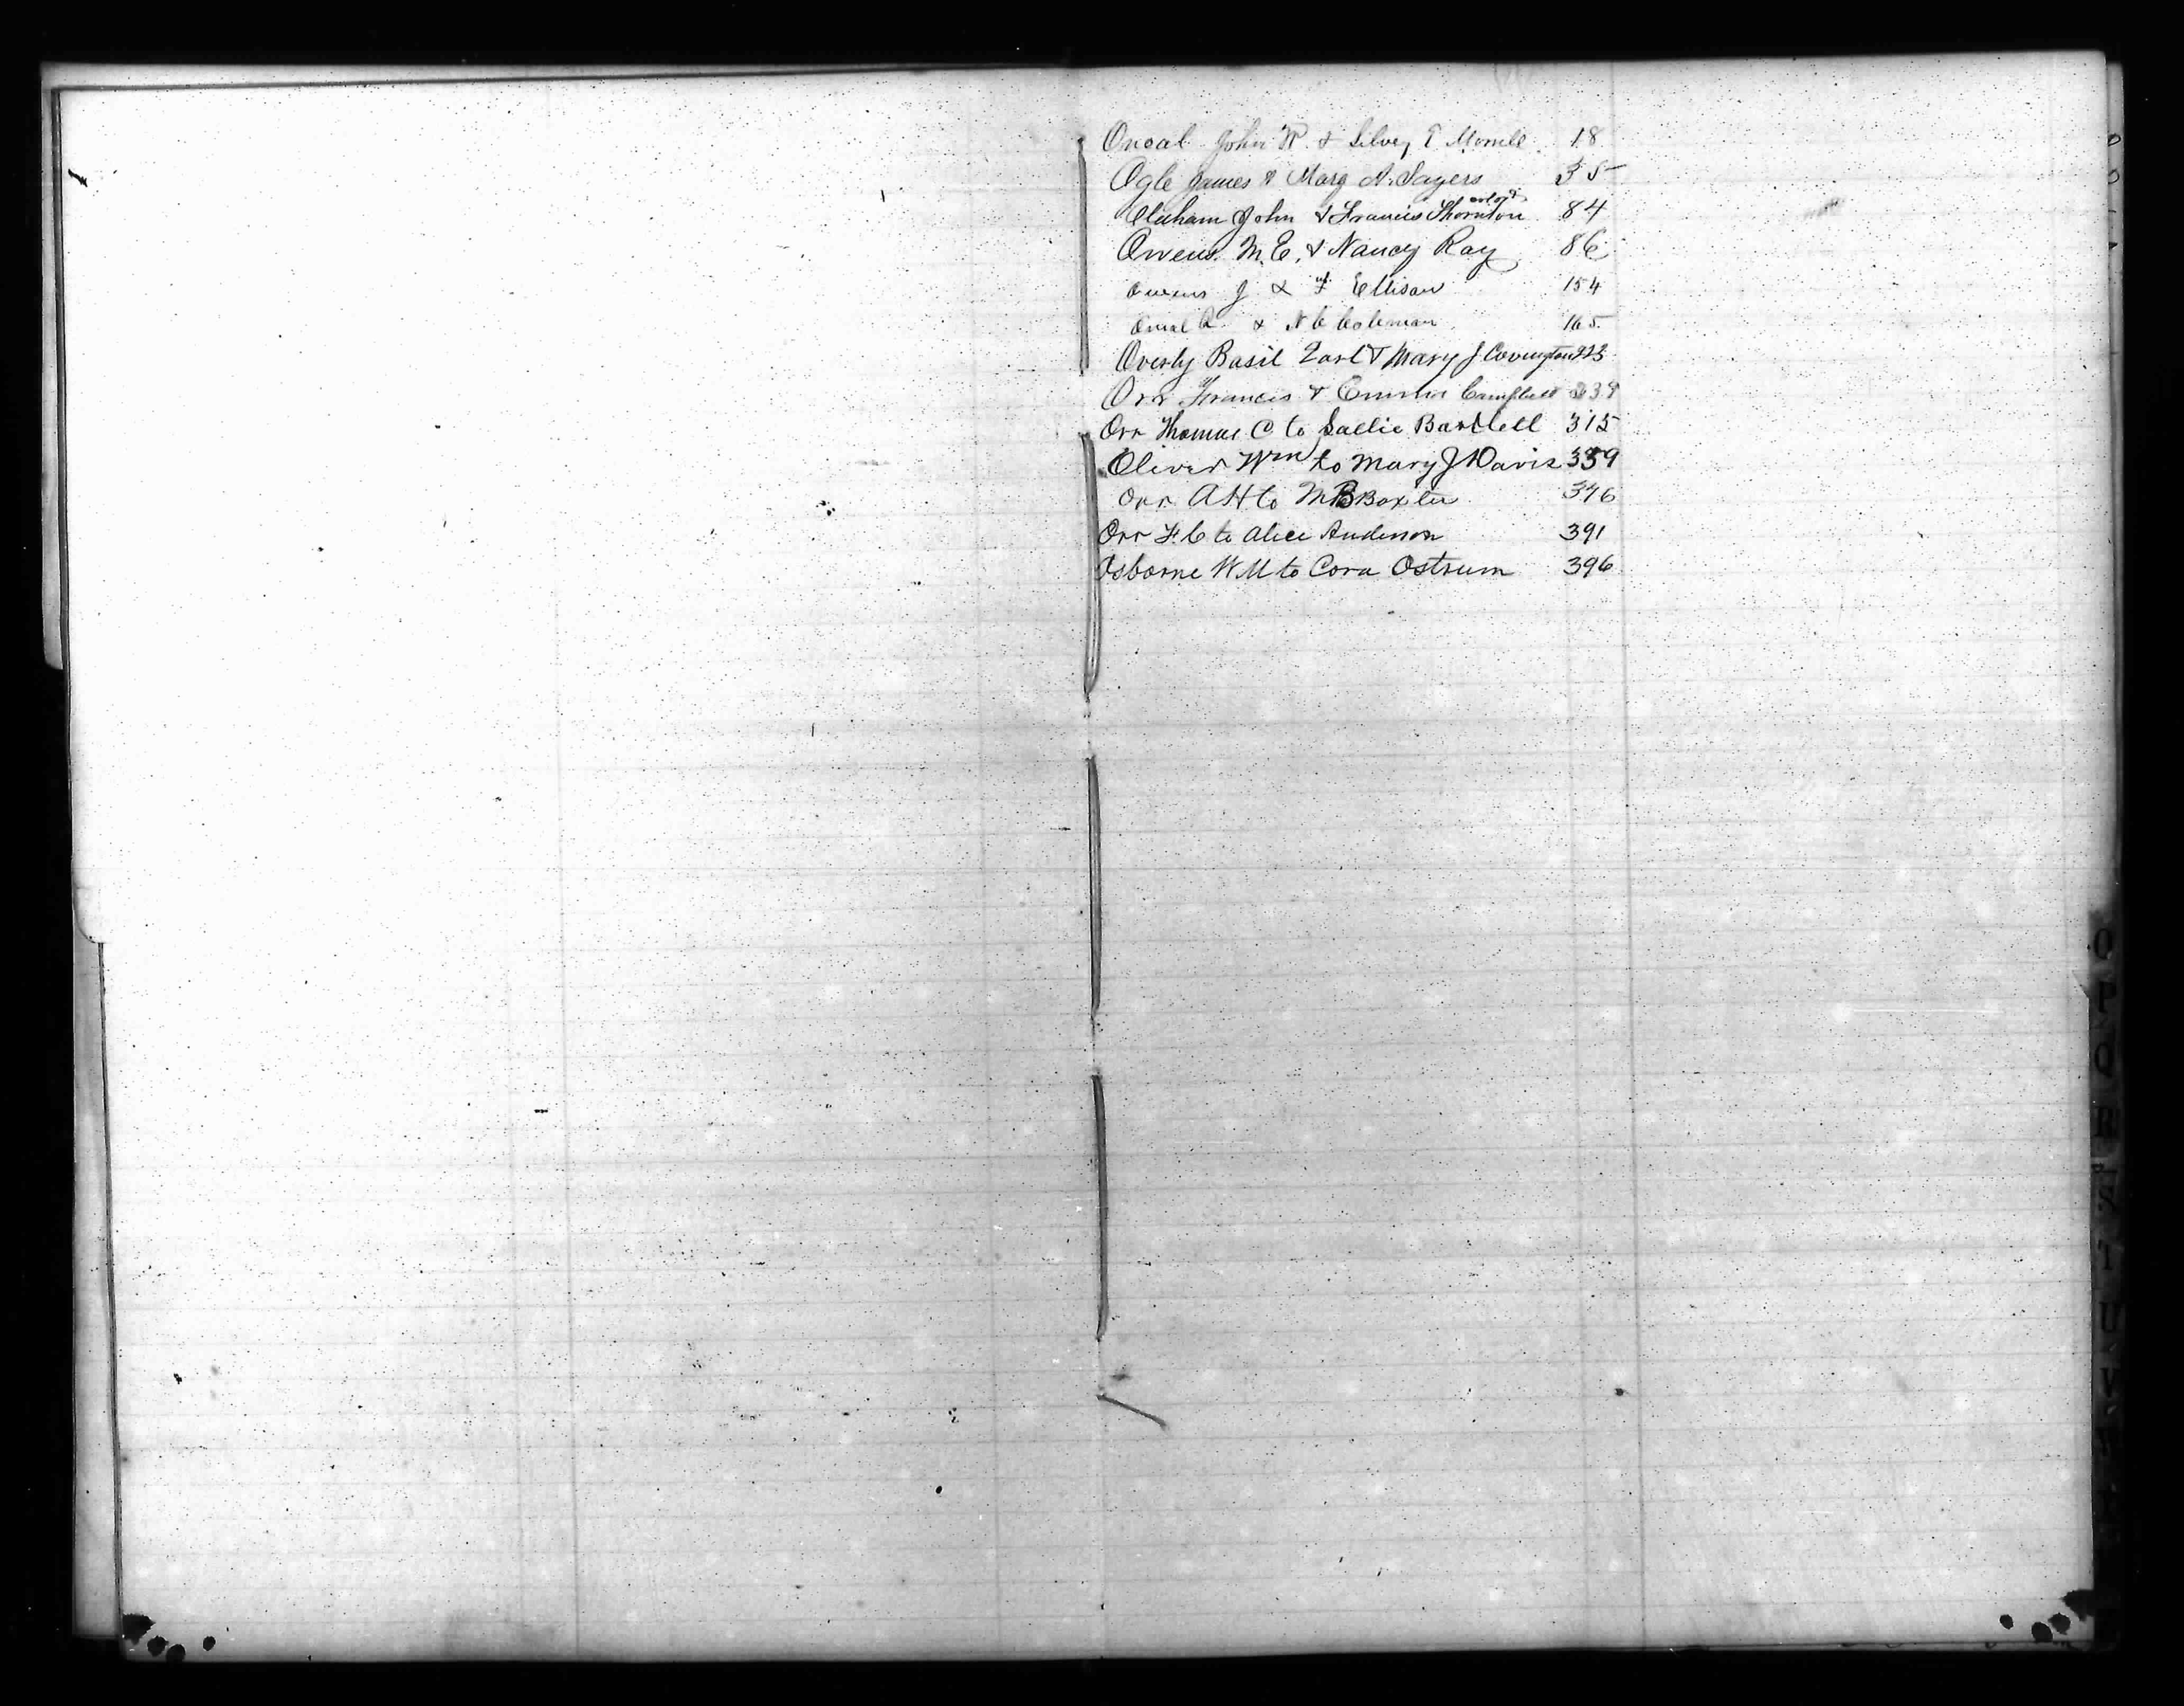 Onoal John W. & Silvey E Morrell 18
Ogle James & Mary A. Sayers 35
Oldham John & Francis Thornton colord 84
Owens M. E. & Nancy Ray 86
Owens J & F Ellison 154
Oneal & N C Coleman 165
Overly Basil Earl & Mary J Covington 223
Orr Francis & Emma Campbell 239
Orr Thomas C to Sallie Bartlell 315
Oliver Wm to Mary J Davis 339
Orr A H to M B Baxter 346
Orr F. C to Alice Anderson 391
Osborne W M to Cora Ostrum 396
O
P
Q
R
S
T
U
V